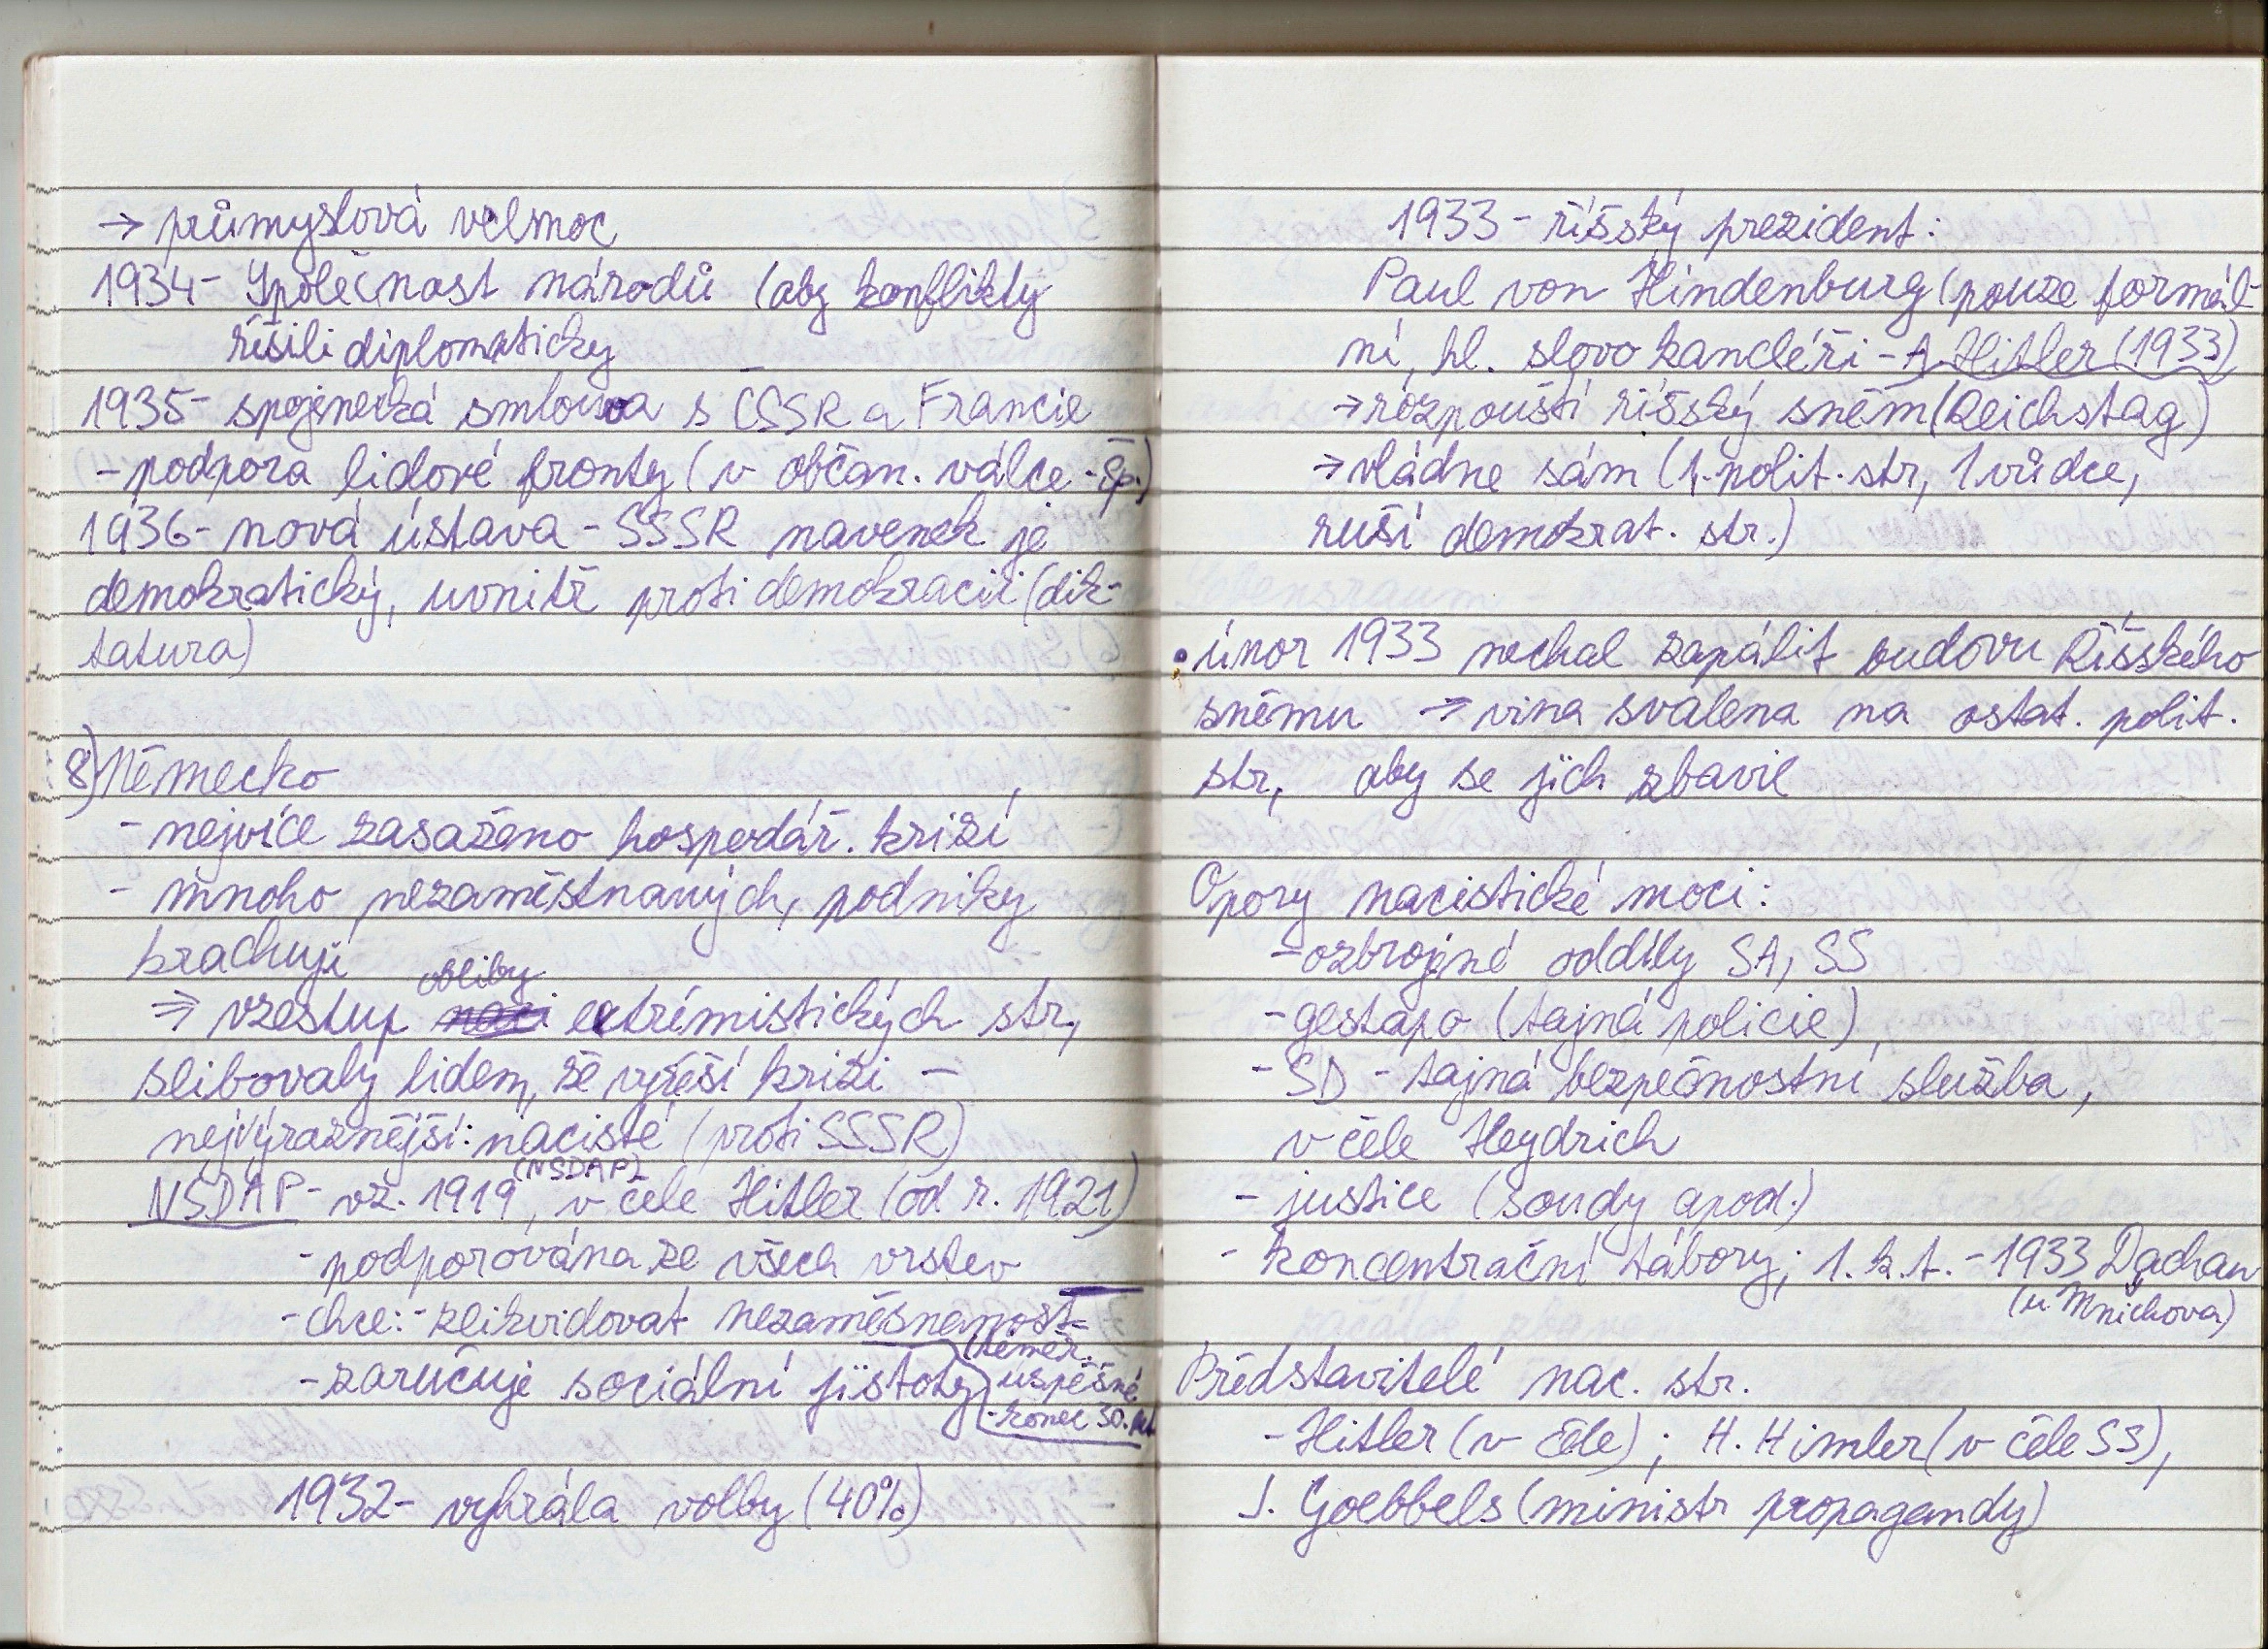 → průmyslová velmoc
1934- Společnost národů (aby konflikty
řišili diplomaticky
1935- spojenecká smlouva s ČSSR a Francie
- podpora lidové fronty (v občan. válce - Šp.)
1936- nová ústava - SSSR navenek je
demokratický, uvnitř proti demokracii (dik-
tatura)
8) Německo
- nejvíce zasaženo hospodář. krizí
- mnoho nezaměstnaných, podniky
krachují
obliby
⇒ vzestup naci extrémistických str,
slibovaly lidem, že vyřeší krizi -
nejvýraznější: nacisté (proti SSSR)
(NSDAP)
NSDAP - vz. 1919, v čele Hitler (od r. 1921)
- podporována ze všech vrstev
- chce: - zlikvidovat nezaměsnanost-
(téměř
- zaručuje sociální jistoty úspěšné
- konec 30. let
1932- vyhrála volby (40%)
1933 - říšský prezident:
Paul von Hindenburg (pouze formál-
ní, hl. slovo kancléři - A. Hitler (1933)
→ rozpouští říšský sněm (Reichstag)
→ vládne sám (1. polit. str, 1 vůdce,
ruší demokrat. str.)
• únor 1933 nechal zapálit budovu Říšského
sněmu → vina svalena na ostat. polit.
str, aby se jich zbavil
Opory nacistické moci:
- ozbrojené oddíly SA, SS
- gestapo (tajná policie)
- SD - tajná bezpečnostní služba,
v čele Heydrich
- justice (soudy apod.)
- koncentrační tábory; 1. k. t. - 1933 Dachau
(u Mnichova)
Představitelé nac. str.
- Hitler (v čele); H. Himler (v čele SS),
J. Goebbels (ministr propagandy)